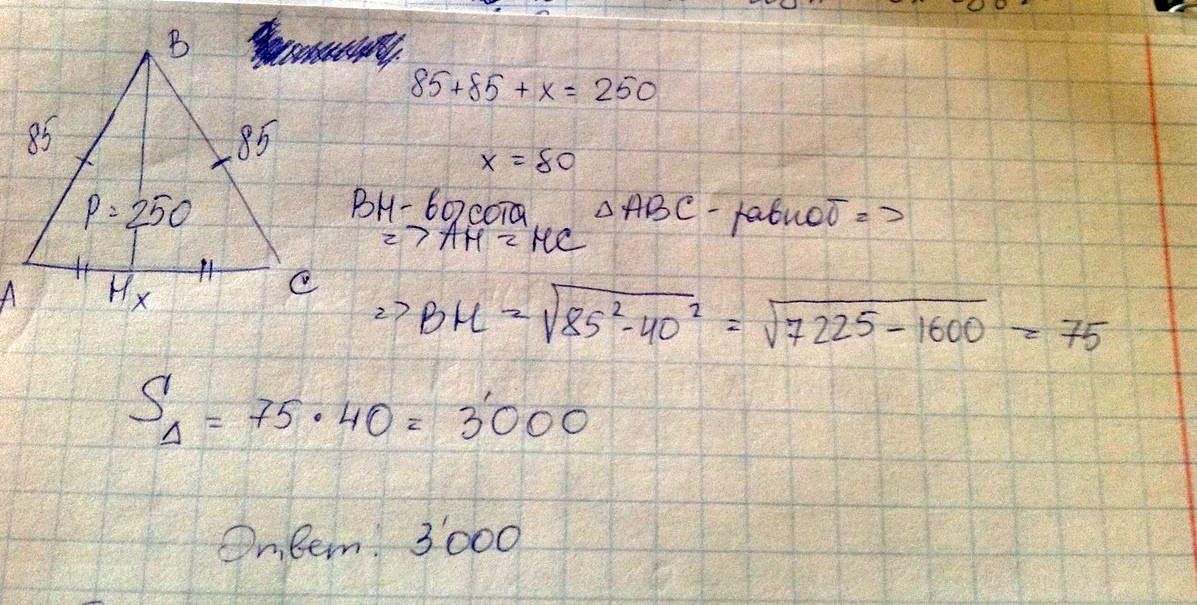 B
85
85
P = 250
A
H
x
C
85+85+x = 250
x = 80
BH - высота ΔABC - равноб =>
=> AH = HC
=> BH = √85²-40² = √7225-1600 = 75
S△ = 75 · 40 = 3'000
Ответ: 3'000